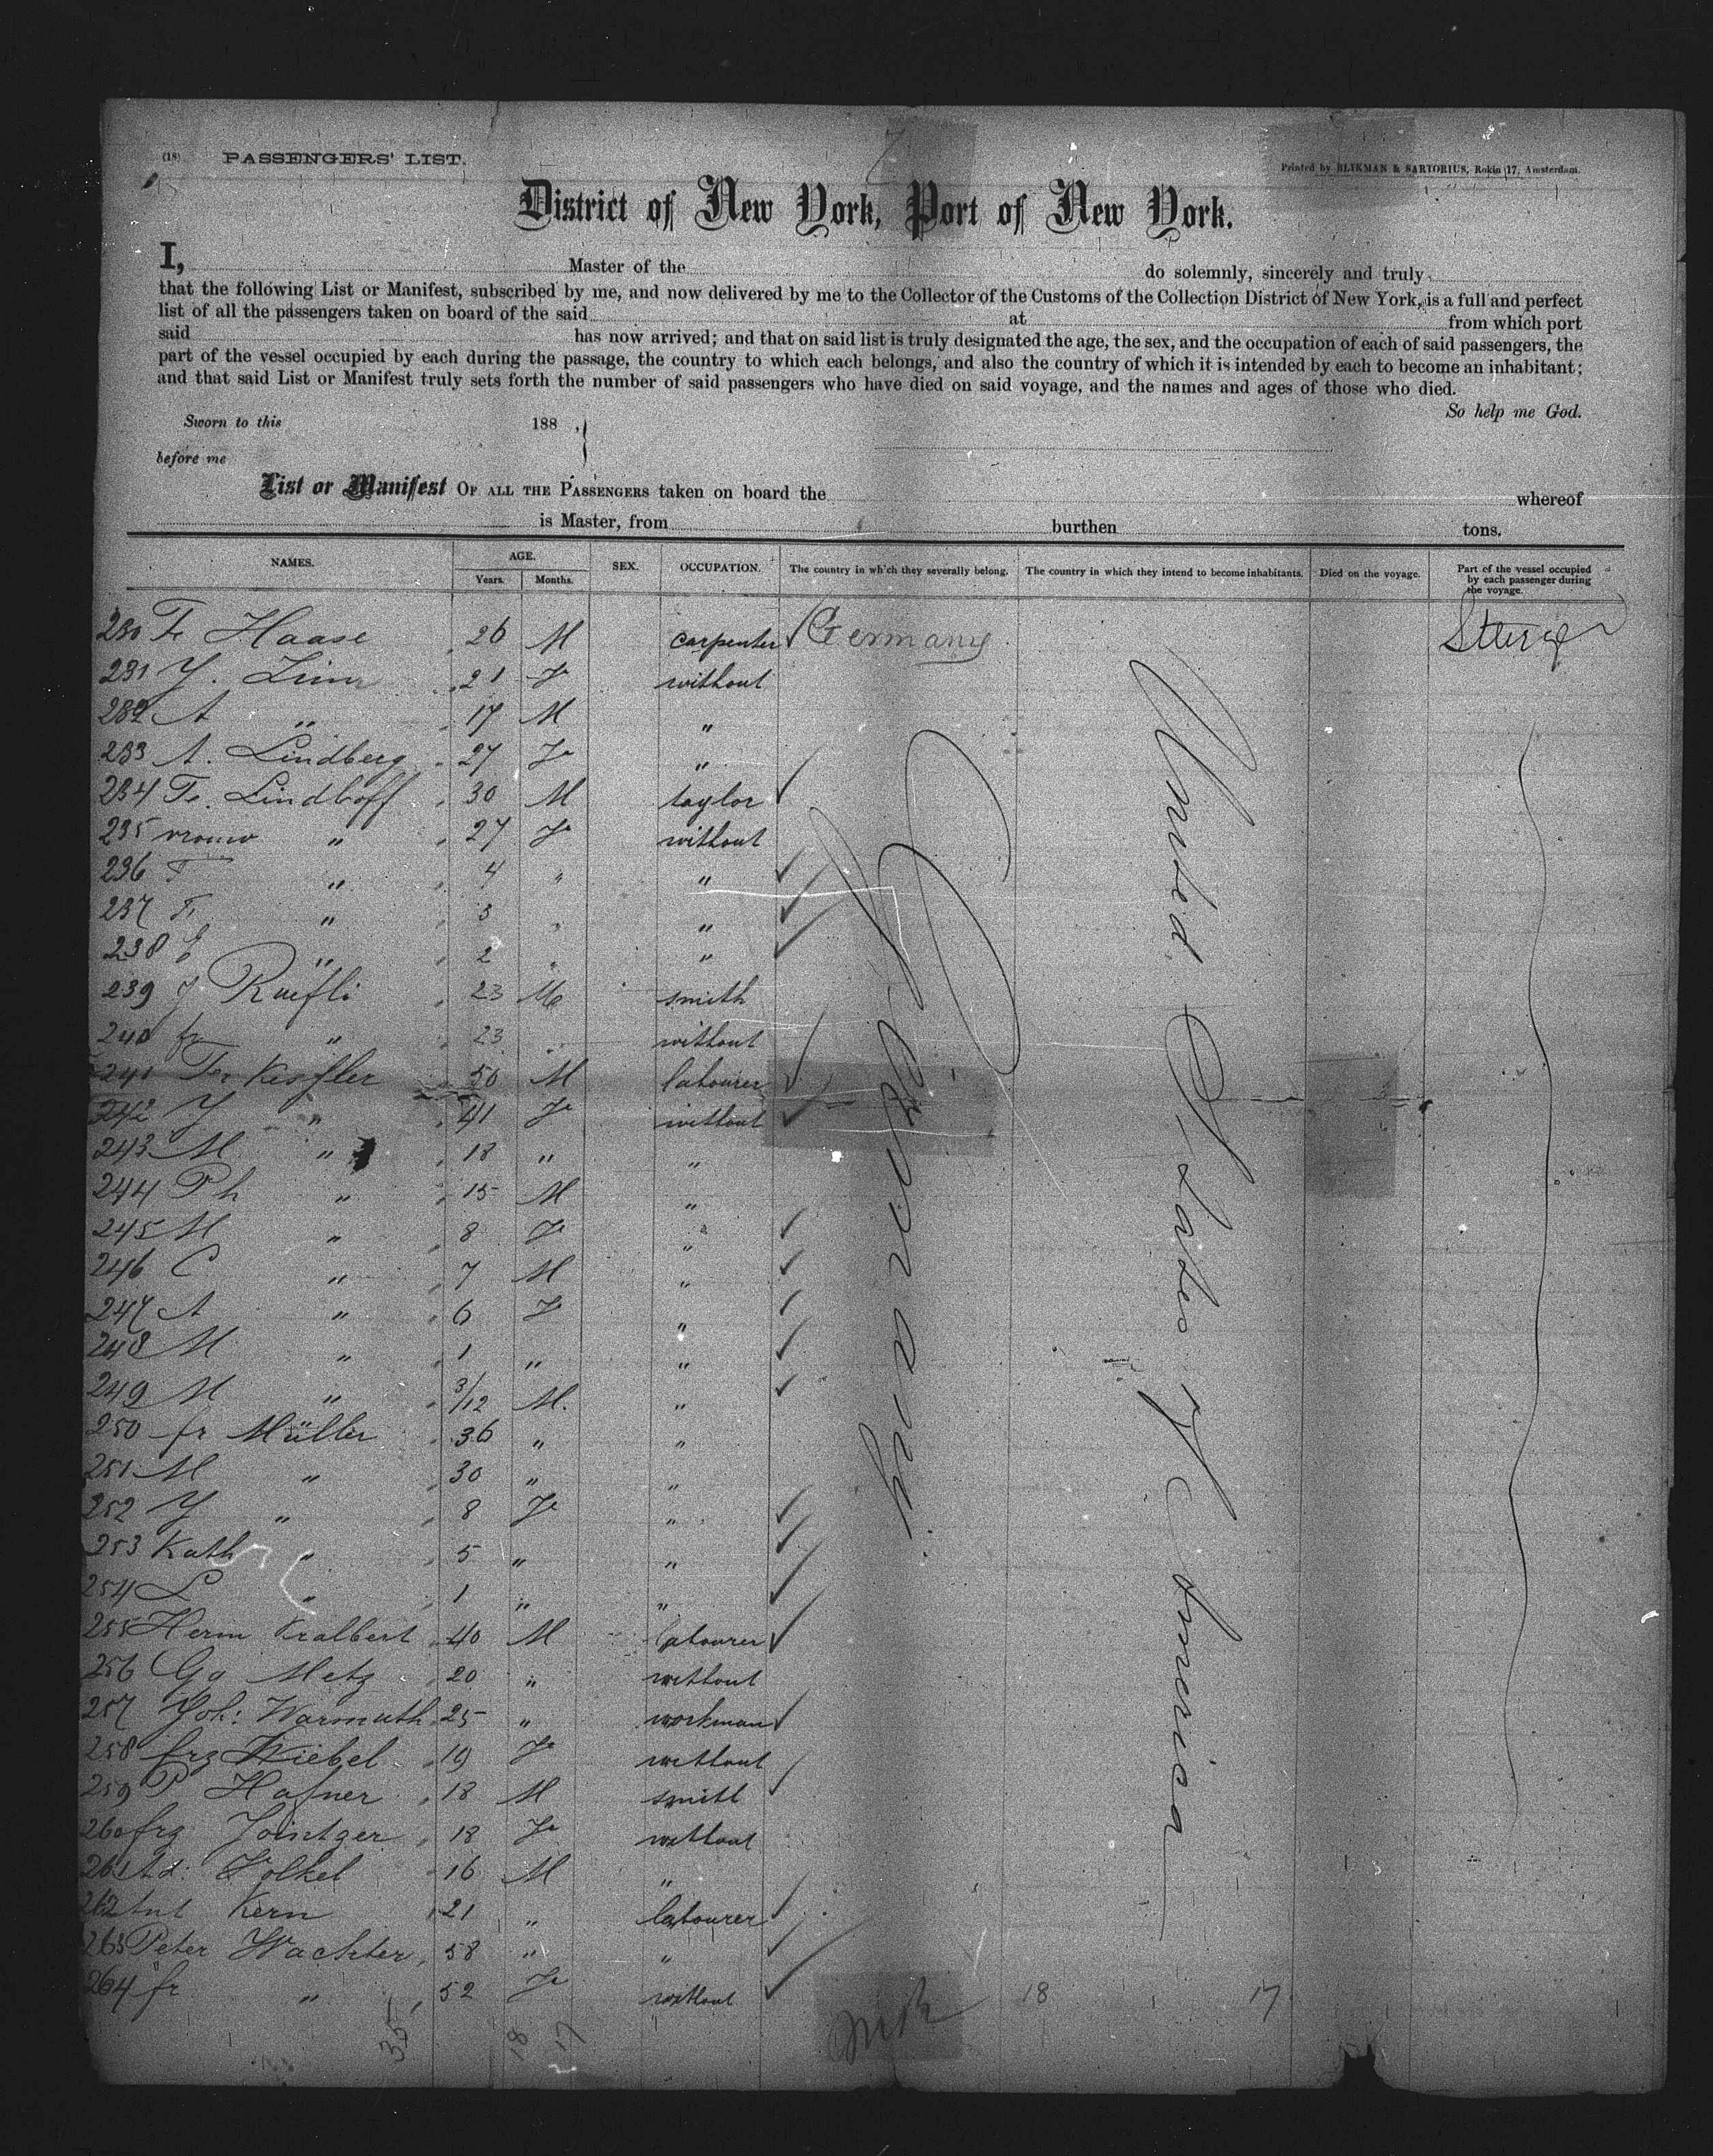 (18) PASSENGERS' LIST.
Printed by BLIKMAN & SARTORIUS, Rokin 17, Amsterdam.
District of New York, Port of New York.
I, Master of the do solemnly, sincerely and truly
that the following List or Manifest, subscribed by me, and now delivered by me to the Collector of the Customs of the Collection District of New York, is a full and perfect
list of all the passengers taken on board of the said at from which port
said has now arrived; and that on said list is truly designated the age, the sex, and the occupation of each of said passengers, the
part of the vessel occupied by each during the passage, the country to which each belongs, and also the country of which it is intended by each to become an inhabitant;
and that said List or Manifest truly sets forth the number of said passengers who have died on said voyage, and the names and ages of those who died.
So help me God.
Sworn to this 188 ,
before me
List or Manifest OF ALL THE PASSENGERS taken on board the whereof
is Master, from burthen tons.
NAMES. AGE. Years. Months. SEX. OCCUPATION. The country in which they severally belong. The country in which they intend to become inhabitants. Died on the voyage. Part of the vessel occupied by each passenger during the voyage.
230 Fr Haase 26 M carpenter Germany
231 Y. 21 Fe without
232 A " 17 M "
233 A. Lindberg 27 Fe "
234 Fr. Lindhoff 30 M taylor
235 vrouw " 27 Fe without
236 F " 4 " "
237 Fr " 3 " "
238 E " 2 " "
239 J Ruefli 23 M smith
240 fr " 23 " without
241 Fr Kessler 50 M labourer
242 Y " 41 Fe without
243 M " 18 " "
244 Ph " 15 M "
245 M " 8 Fe "
246 C " 7 M "
247 A " 6 Fe "
248 M " 1 " "
249 M " 3/12 M. "
250 fr Müller 36 " "
251 M " 30 " "
252 Y " 8 Fe "
253 Kath " 5 " "
254 L " 1 " "
255 Herm Kralbert 40 M labourer
256 Gg Metz 20 " without
257 Joh: Warmuth 25 " workman
258 frz Wiebel 19 Fe without
259 P Hafner 18 M smith
260 frz Jointger 18 Fe without
261 Ad: Volkel 16 M "
262 Ant Kern 21 " labourer
263 Peter Wachter 58 " "
264 fr " 52 Fe without
Germany
United States of America
35 18 17
18 17